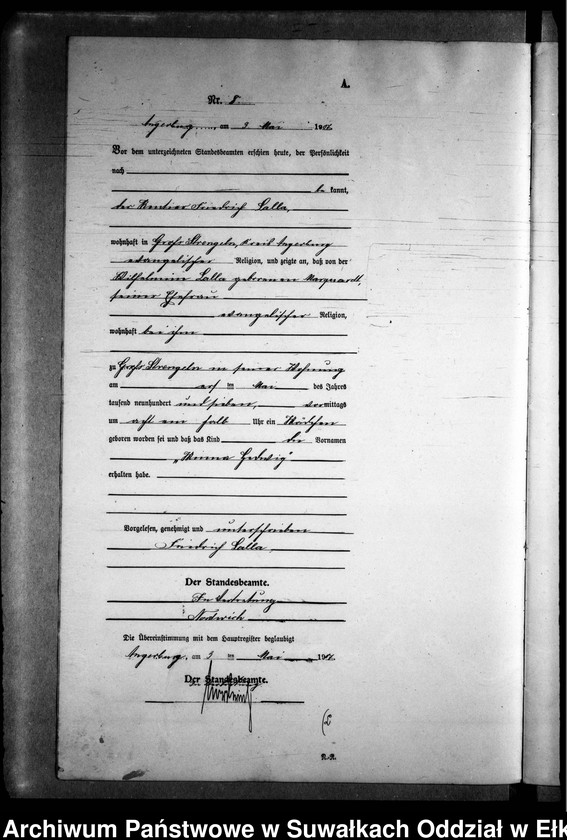 A.
Nr. 8
Angerburg, am 3 Mai 190
Vor dem unterzeichneten Standesbeamten erschien heute, der Persönlichkeit
nach
be kannt,
der Rentier Friedrich Salla,
wohnhaft in Groß Strengeln, Kreis Angerburg
evangelischer Religion, und zeigte an, daß von der
Wilhelmine Salla geborenen Marquardt,
seiner Ehefrau
evangelischer Religion,
wohnhaft bei ihm
zu Groß Strengeln in seiner Wohnung
am Mai des Jahres
tausend neunhundert und sieben, vormittags
um acht ein halb Uhr ein Mädchen
geboren worden sei und daß das Kind die Vornamen
„Minna Hedwig"
erhalten habe.
Vorgelesen, genehmigt und unterschrieben
Friedrich Salla,
Der Standesbeamte.
In Vertretung
Die Übereinstimmung mit dem Hauptregister beglaubigt
Angerburg, am 3 Mai 190
Der Standesbeamte.
R.-R.
Archiwum Państwowe w Suwałkach Oddział w Ełk